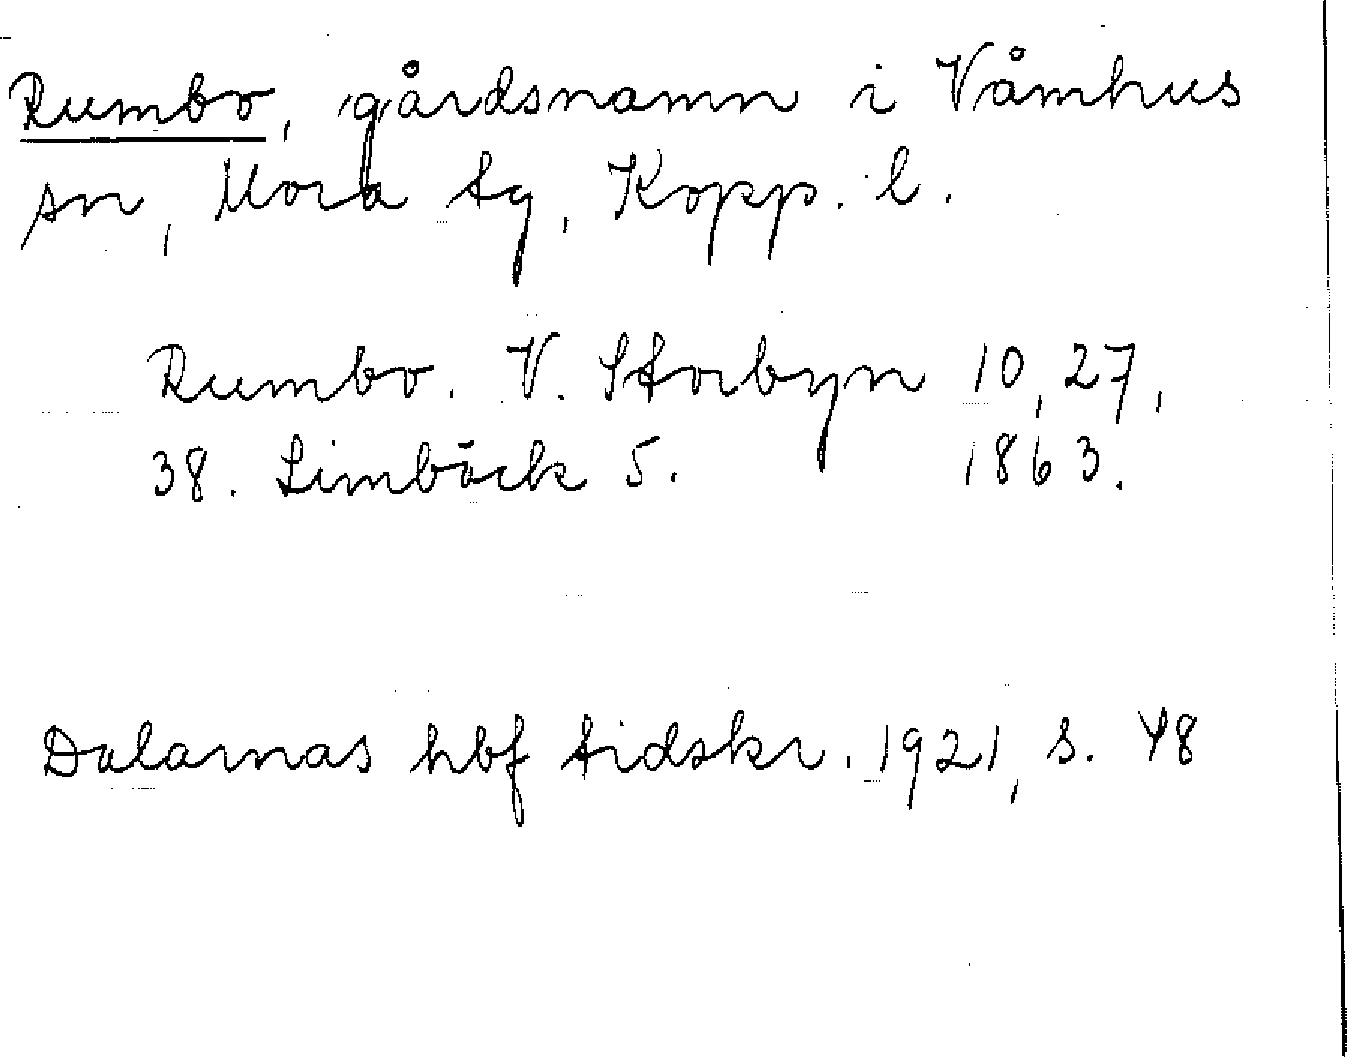 Rumbo, gårdsnamn i Våmhus
sn, Mora tg, Kopp. l.
Rumbo. V. Storbyn 10, 27,
38. Limbäck 5. 1863.
Dalarnas hbf tidskr. 1921, s. 48